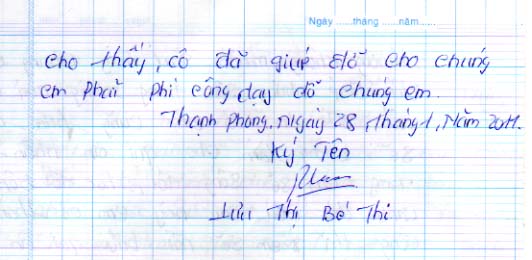 Ngày ......tháng ......năm......
cho thấy, cô đã giúp đỡ cho chúng
em phải phí công dạy dỗ chúng em.
Thạnh phong, ngày 28, tháng 1, Năm 2011.
Ký Tên
Lưu Thị Bé Thi